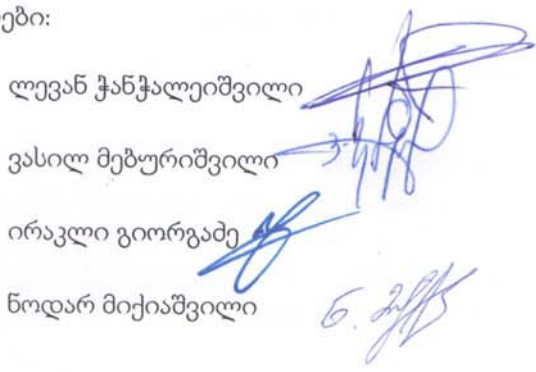 ები:
ლევან ჭანჭალეიშვილი
ვასილ მებურიშვილი
ირაკლი გიორგაძე
ნოდარ მიქიაშვილი